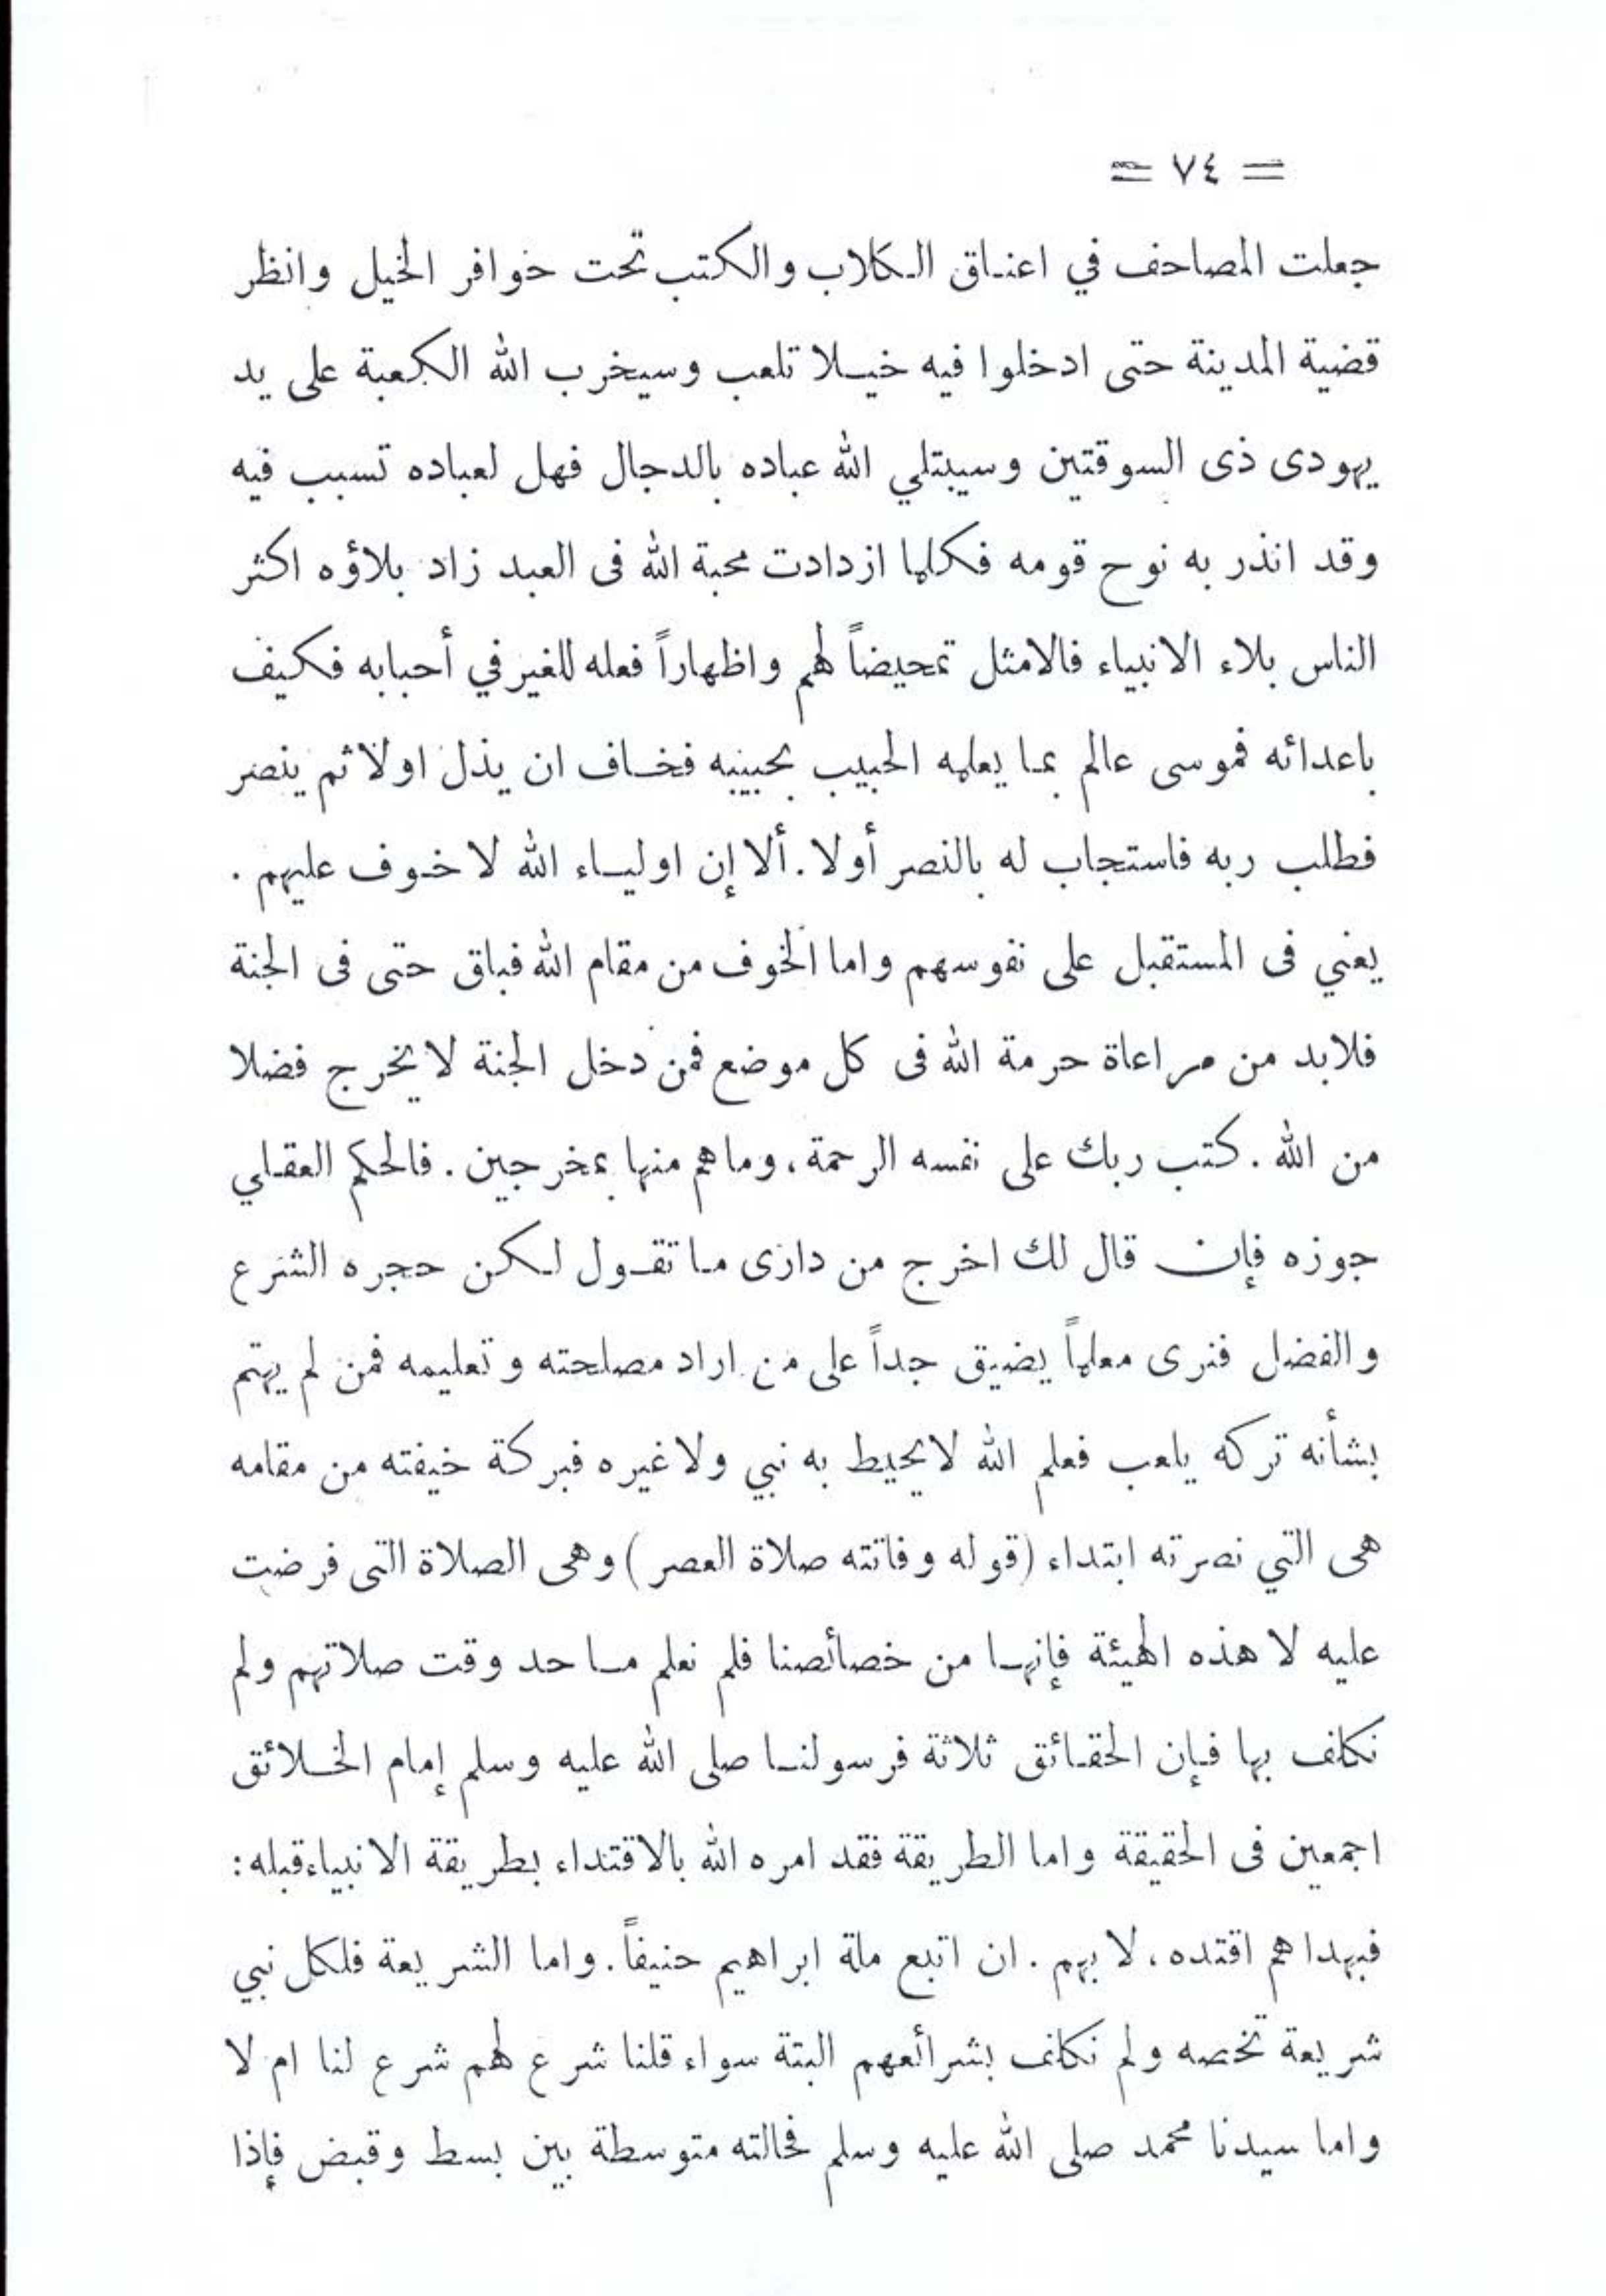 = ٧٤ =
جعلت المصاحف في اعناق الكلاب والكتب تحت حوافر الخيل وانظر
قضية المدينة حتى ادخلوا فيه خيلا تلعب وسيخرب الله الكعبة على يد
يهودى ذى السوقتين وسيبتلي الله عباده بالدجال فهل لعباده تسبب فيه
وقد انذر به نوح قومه فكلما ازدادت محبة الله فى العبد زاد بلاؤه اكثر
الناس بلاء الانبياء فالامثل تمحيضاً لهم واظهاراً فعله للغير في أحبابه فكيف
باعدائه فموسى عالم بما يعلمه الحبيب بحبيبه فخاف ان يذل اولا ثم ينصر
فطلب ربه فاستجاب له بالنصر أولا. ألا إن اولياء الله لا خوف عليهم .
يعني فى المستقبل على نفوسهم واما الخوف من مقام الله فباق حتى فى الجنة
فلابد من مراعاة حرمة الله فى كل موضع فمن دخل الجنة لا يخرج فضلا
من الله . كتب ربك على نفسه الرحمة ، وما هم منها بمخرجين . فالحكم العقلي
جوزه فإن قال لك اخرج من دارى ما تقول لكن حجره الشرع
والفضل فنرى معلماً يضيق جداً على من اراد مصلحته وتعليمه فمن لم يهتم
بشأنه تركه يلعب فعلم الله لا يحيط به نبي ولا غيره فبركة خيفته من مقامه
هى التي نصرته ابتداء (قوله وفاتته صلاة العصر) وهى الصلاة التى فرضت
عليه لا هذه الهيئة فإنها من خصائصنا فلم نعلم ما حد وقت صلاتهم ولم
نكلف بها فإن الحقائق ثلاثة فرسولنا صلى الله عليه وسلم إمام الخلائق
اجمعين فى الحقيقة واما الطريقة فقد امره الله بالاقتداء بطريقة الانبياء قبله :
فبهداهم اقتده ، لا بهم . ان اتبع ملة ابراهيم حنيفاً . واما الشريعة فلكل نبي
شريعة تخصه ولم نكلف بشرائعهم البتة سواء قلنا شرع لهم شرع لنا ام لا
واما سيدنا محمد صلى الله عليه وسلم فحالته متوسطة بين بسط وقبض فإذا